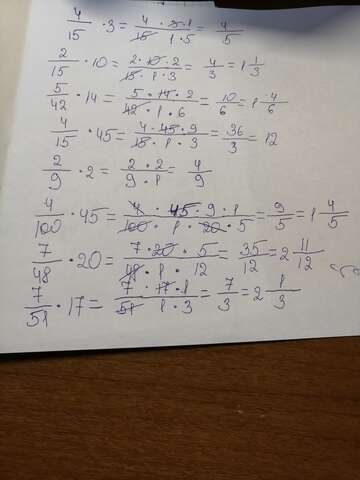 4/15 · 3 = 4 · 3 · 1/15 · 1 · 5 = 4/5
2/15 · 10 = 2 · 10 · 2/15 · 1 · 3 = 4/3 = 1 1/3
5/42 · 14 = 5 · 14 · 2/42 · 1 · 6 = 10/6 = 1 4/6
4/15 · 45 = 4 · 45 · 9/15 · 1 · 3 = 36/3 = 12
2/9 · 2 = 2 · 2/9 · 1 = 4/9
4/100 · 45 = 4 · 45 · 9 · 1/100 · 1 · 20 · 5 = 9/5 = 1 4/5
7/48 · 20 = 7 · 20 · 5/48 · 1 · 12 = 35/12 = 2 11/12
7/51 · 17 = 7 · 17 · 1/51 · 1 · 3 = 7/3 = 2 1/3